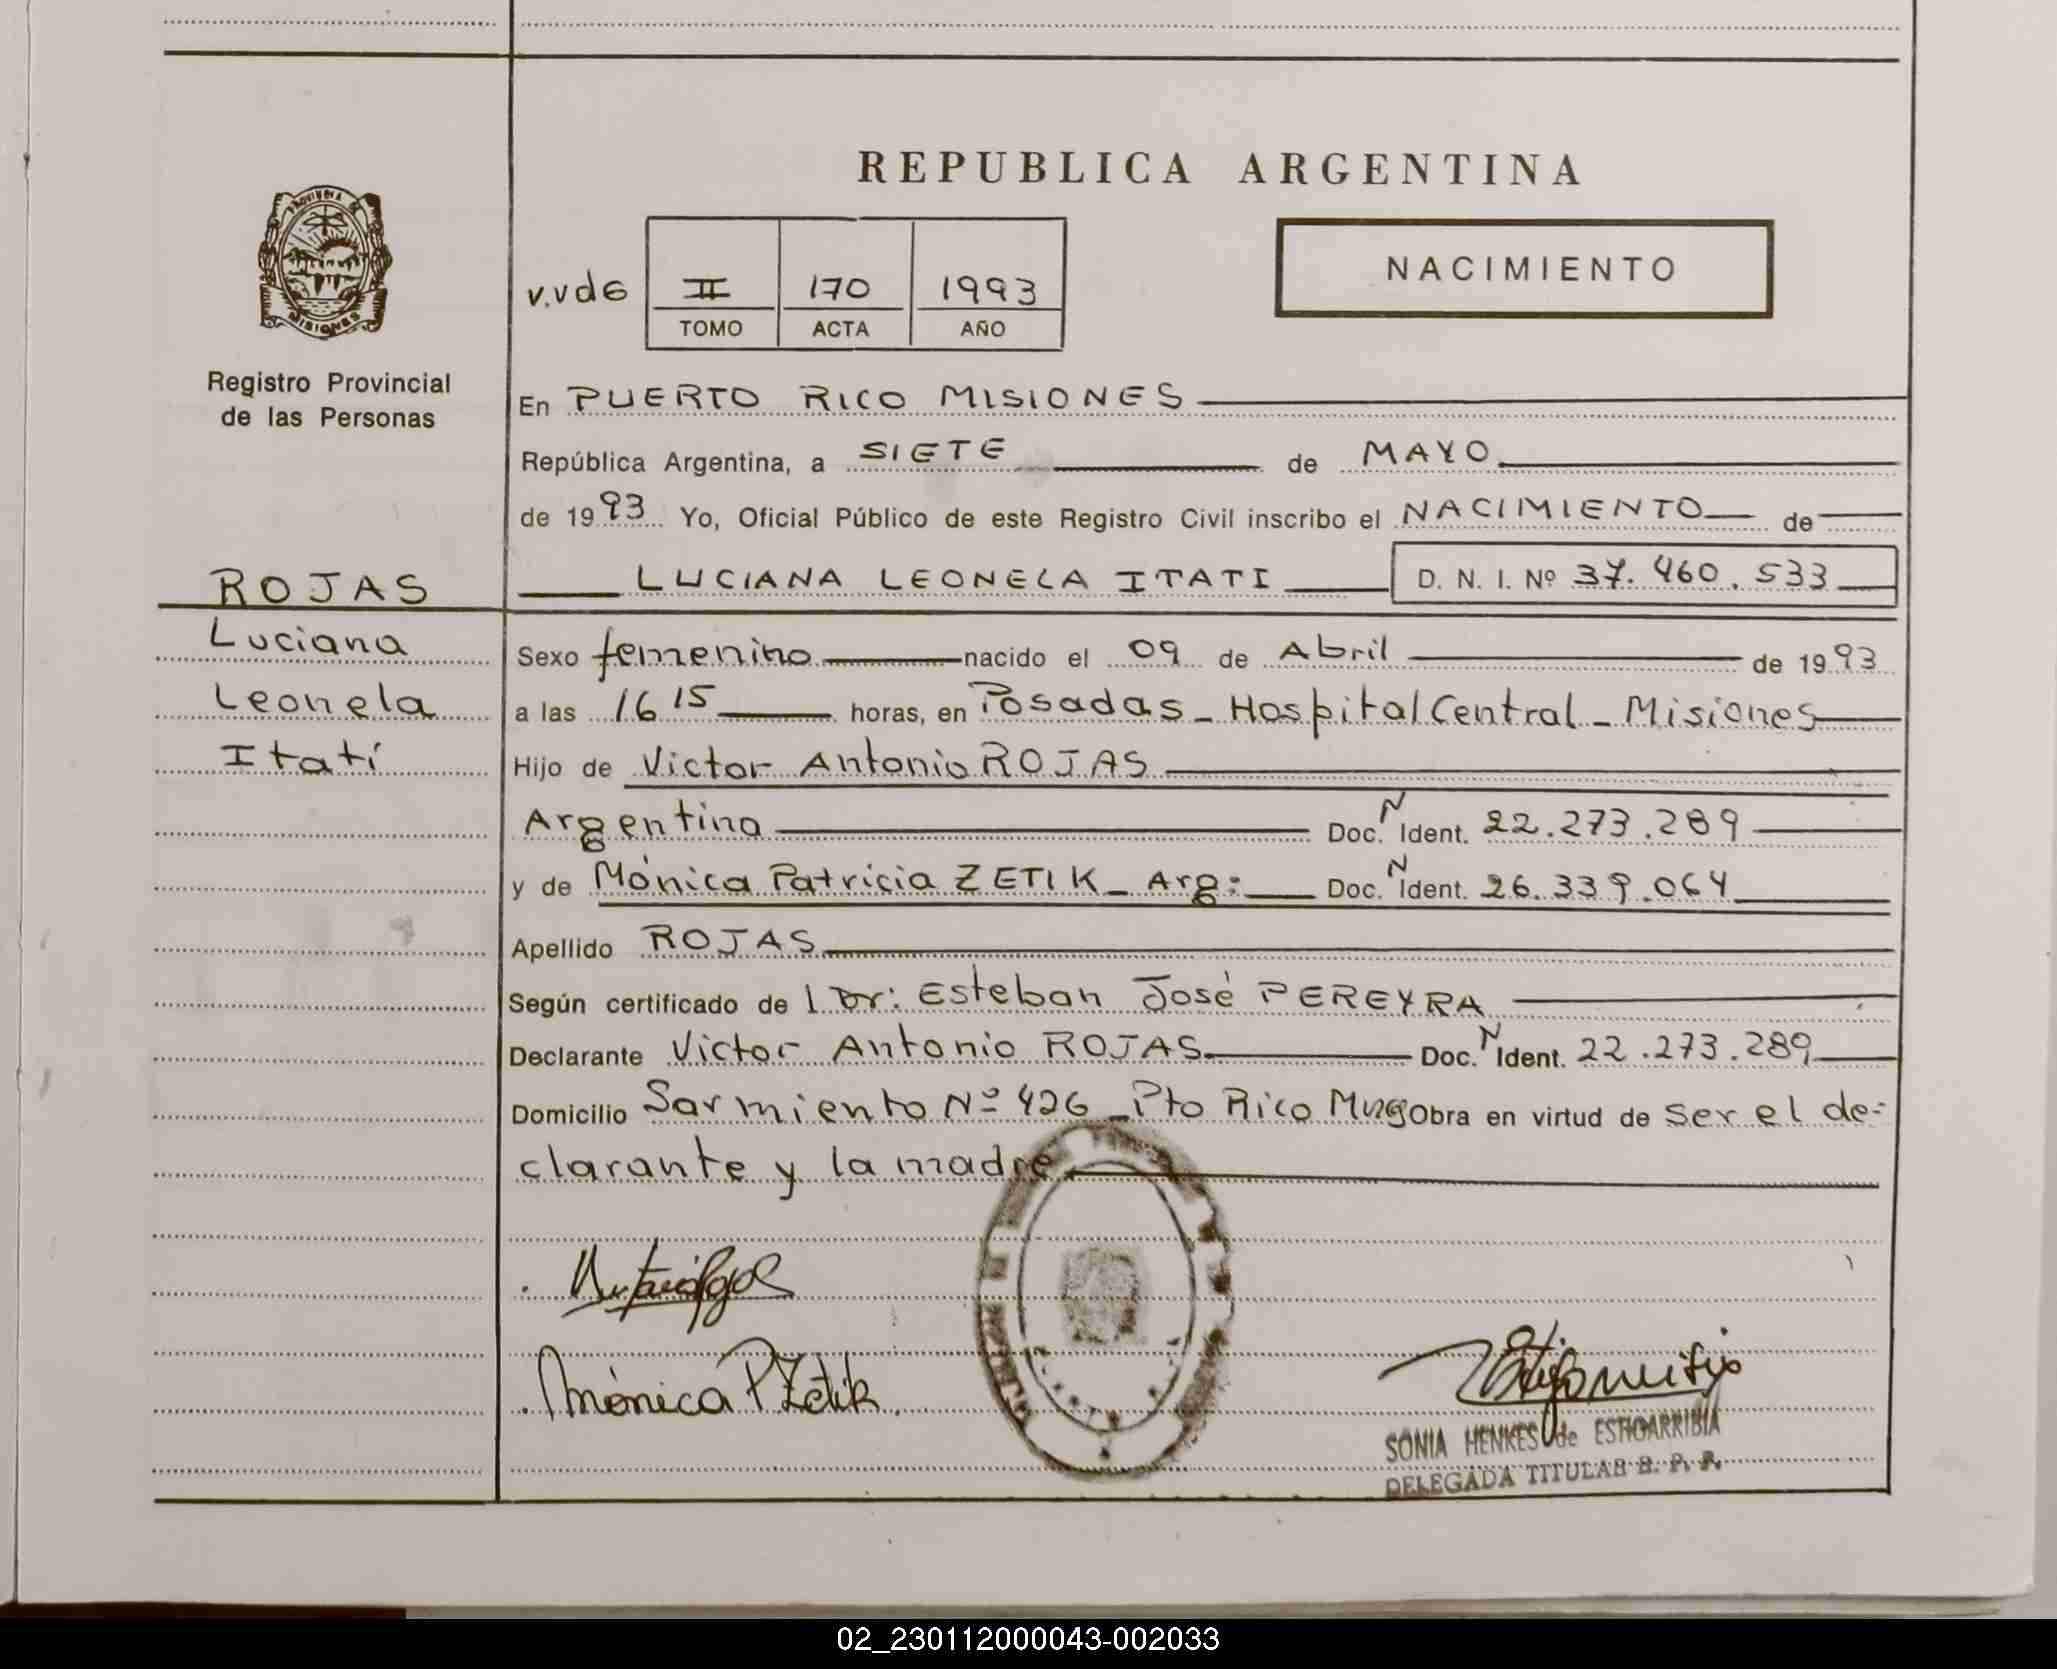 REPUBLICA ARGENTINA
PROVINCIA DE
MISIONES
NACIMIENTO
v.vde II 170 1993
TOMO ACTA AÑO
Registro Provincial
de las Personas
En PUERTO RICO MISIONES
República Argentina, a SIETE de MAYO
de 1993 Yo, Oficial Público de este Registro Civil inscribo el NACIMIENTO de
ROJAS
LUCIANA LEONELA ITATI D. N. I. Nº 37.460.533
Luciana
Sexo femenino nacido el 09 de Abril de 1993
Leonela
a las 16 15 horas, en Posadas - Hospital Central - Misiones
Itatí
Hijo de Victor Antonio ROJAS
Argentina Doc. N Ident. 22.273.289
y de Mónica Patricia ZETIK - Arg: Doc. N Ident. 26.339.064
Apellido ROJAS
Según certificado de l Dr: Esteban José PEREYRA
Declarante Victor Antonio ROJAS Doc. N Ident. 22.273.289
Domicilio Sarmiento Nº 426 - Pto Rico Obra en virtud de ser el de-
clarante y la madre
Mónica P Zetik
SONIA HENKES de ESTIGARRIBIA
DELEGADA TITULAR R. P. P.
02_230112000043-002033